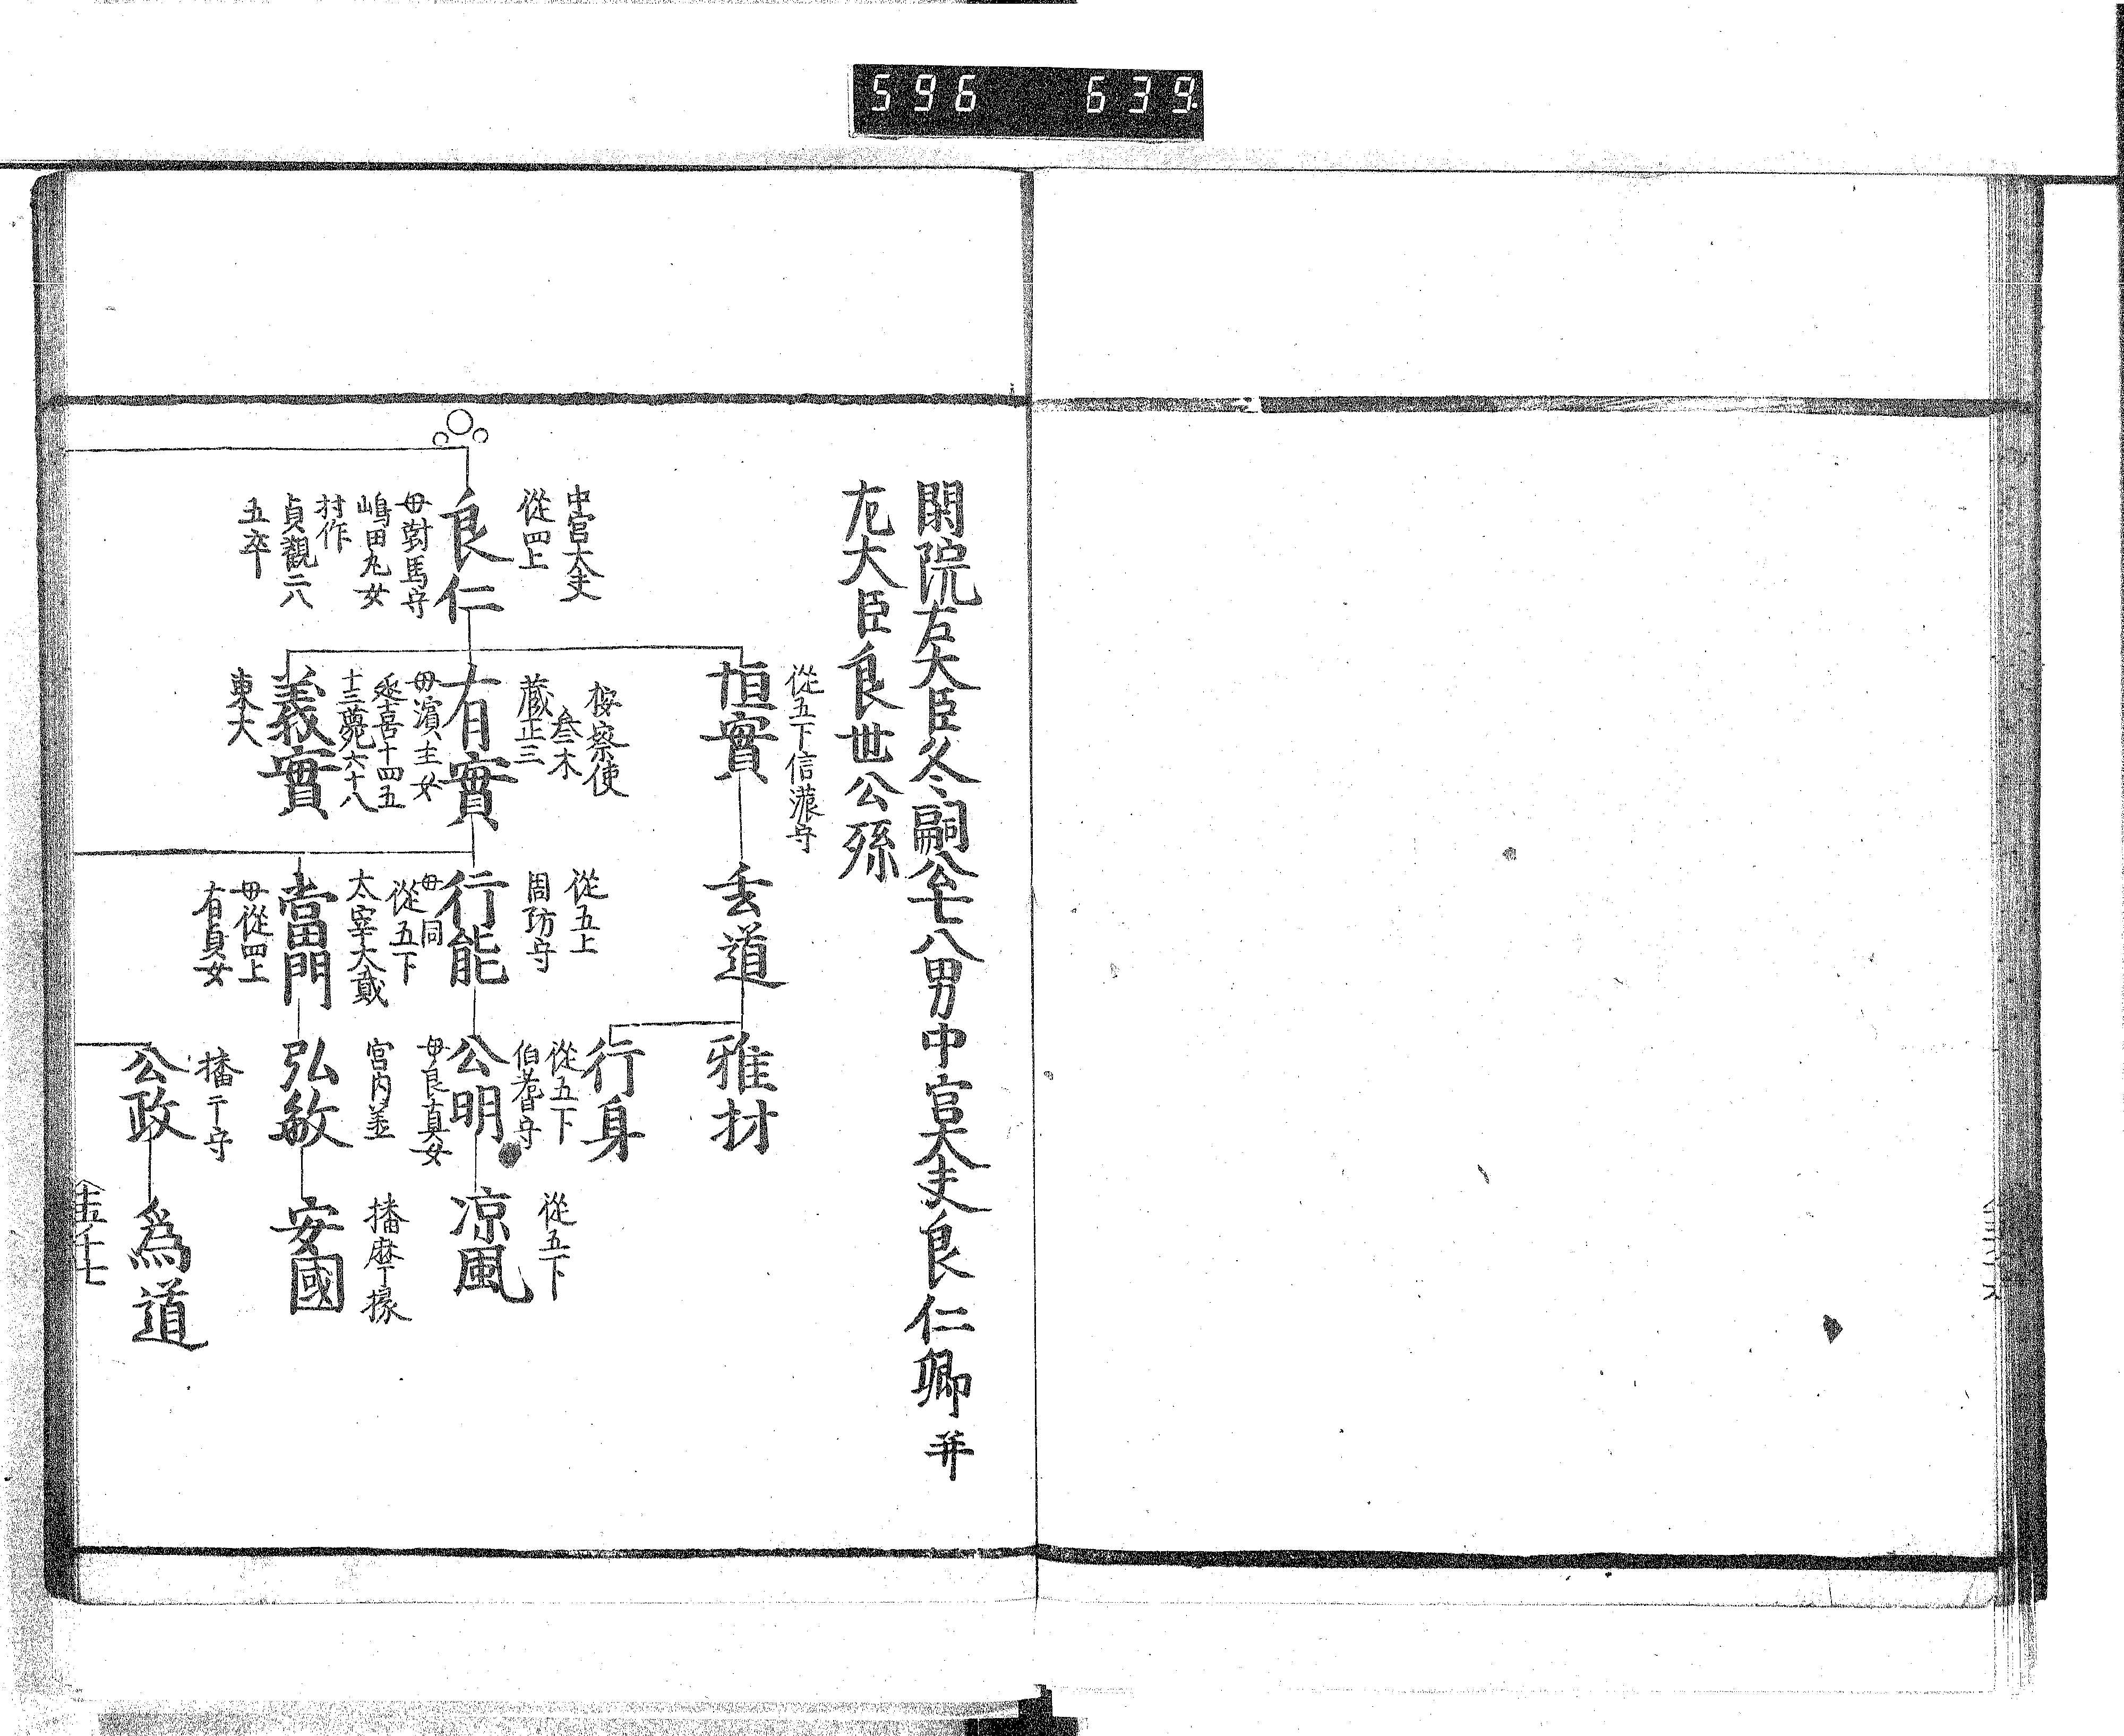 596 639
閑院左大臣冬嗣公七八男中宮大夫良仁卿并
左大臣良世公孫
中宮大夫
從四上
良仁
母對馬守
嶋田丸女
村作
貞觀二八
五卒
從五下信濃守
恒實
按察使
叄木
蔵正三
有實
母濱主女
延喜十四五
十三薨六十八
義實
東大
去道
從五上
周防守
行能
母同
從五下
太宰大貳
當門
母從四上
有貞女
雅材
行身
從五下
伯耆守
公明
母良真女
宮内丞
弘敏
播广守
公政
從五下
凉風
播磨掾
安國
爲道